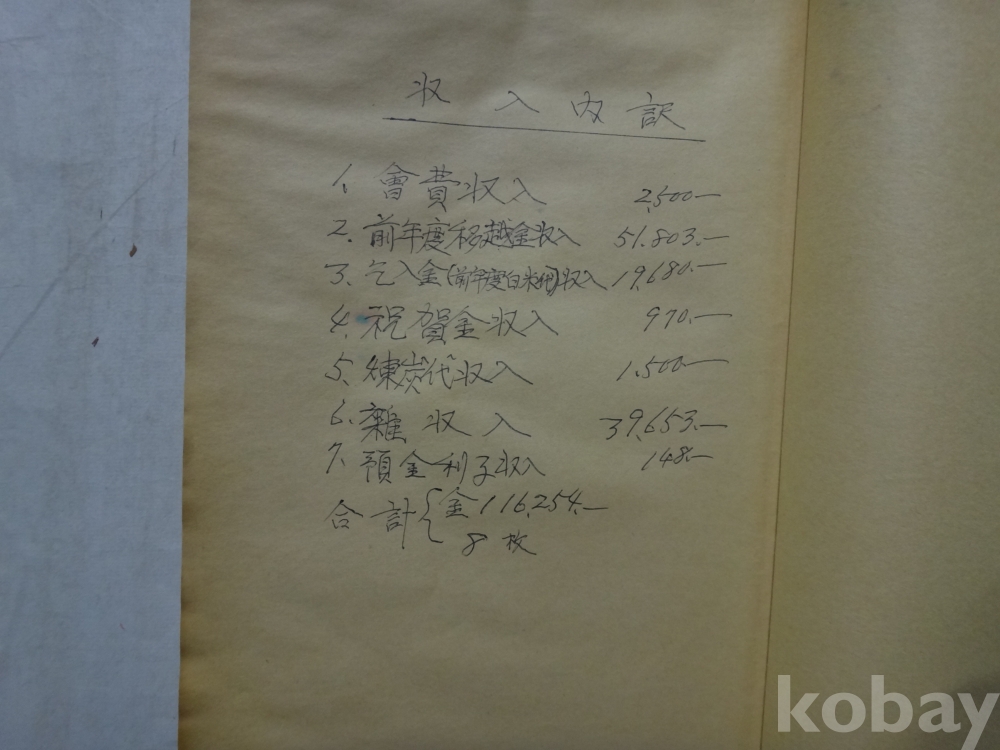 収入内訳
1. 會費収入 2,500.—
2. 前年度移越金収入 51.803.—
3. 仝入金(前年度白米代)収入 19,680.—
4. 祝賀金収入 970.—
5. 煉炭代収入 1.500—
6. 雜収入 39,653.—
7. 預金利子収入 148.—
合計{金116,254.—
8枚
kobay